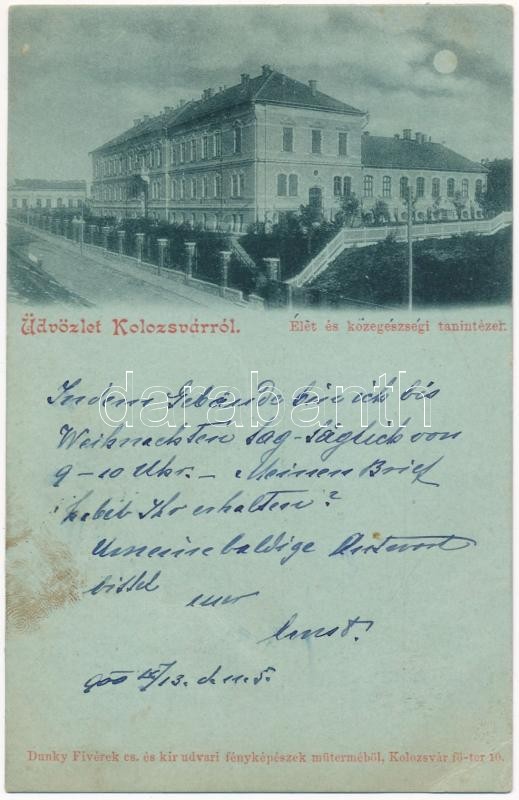 Üdvözlet Kolozsvárról.
Élet és közegészségi tanintézet.
In dem Gebäude bin ich bis
Weihnachten tag-täglich von
9–10 Uhr. – Meinen Brief
habet Ihr erhalten?
Um eine baldige Antwort
bittet
Ernst.
900
Dunky Fivérek cs. és kir udvari fényképészek műterméből, Kolozsvár fő-tér 10.
darabanth.com